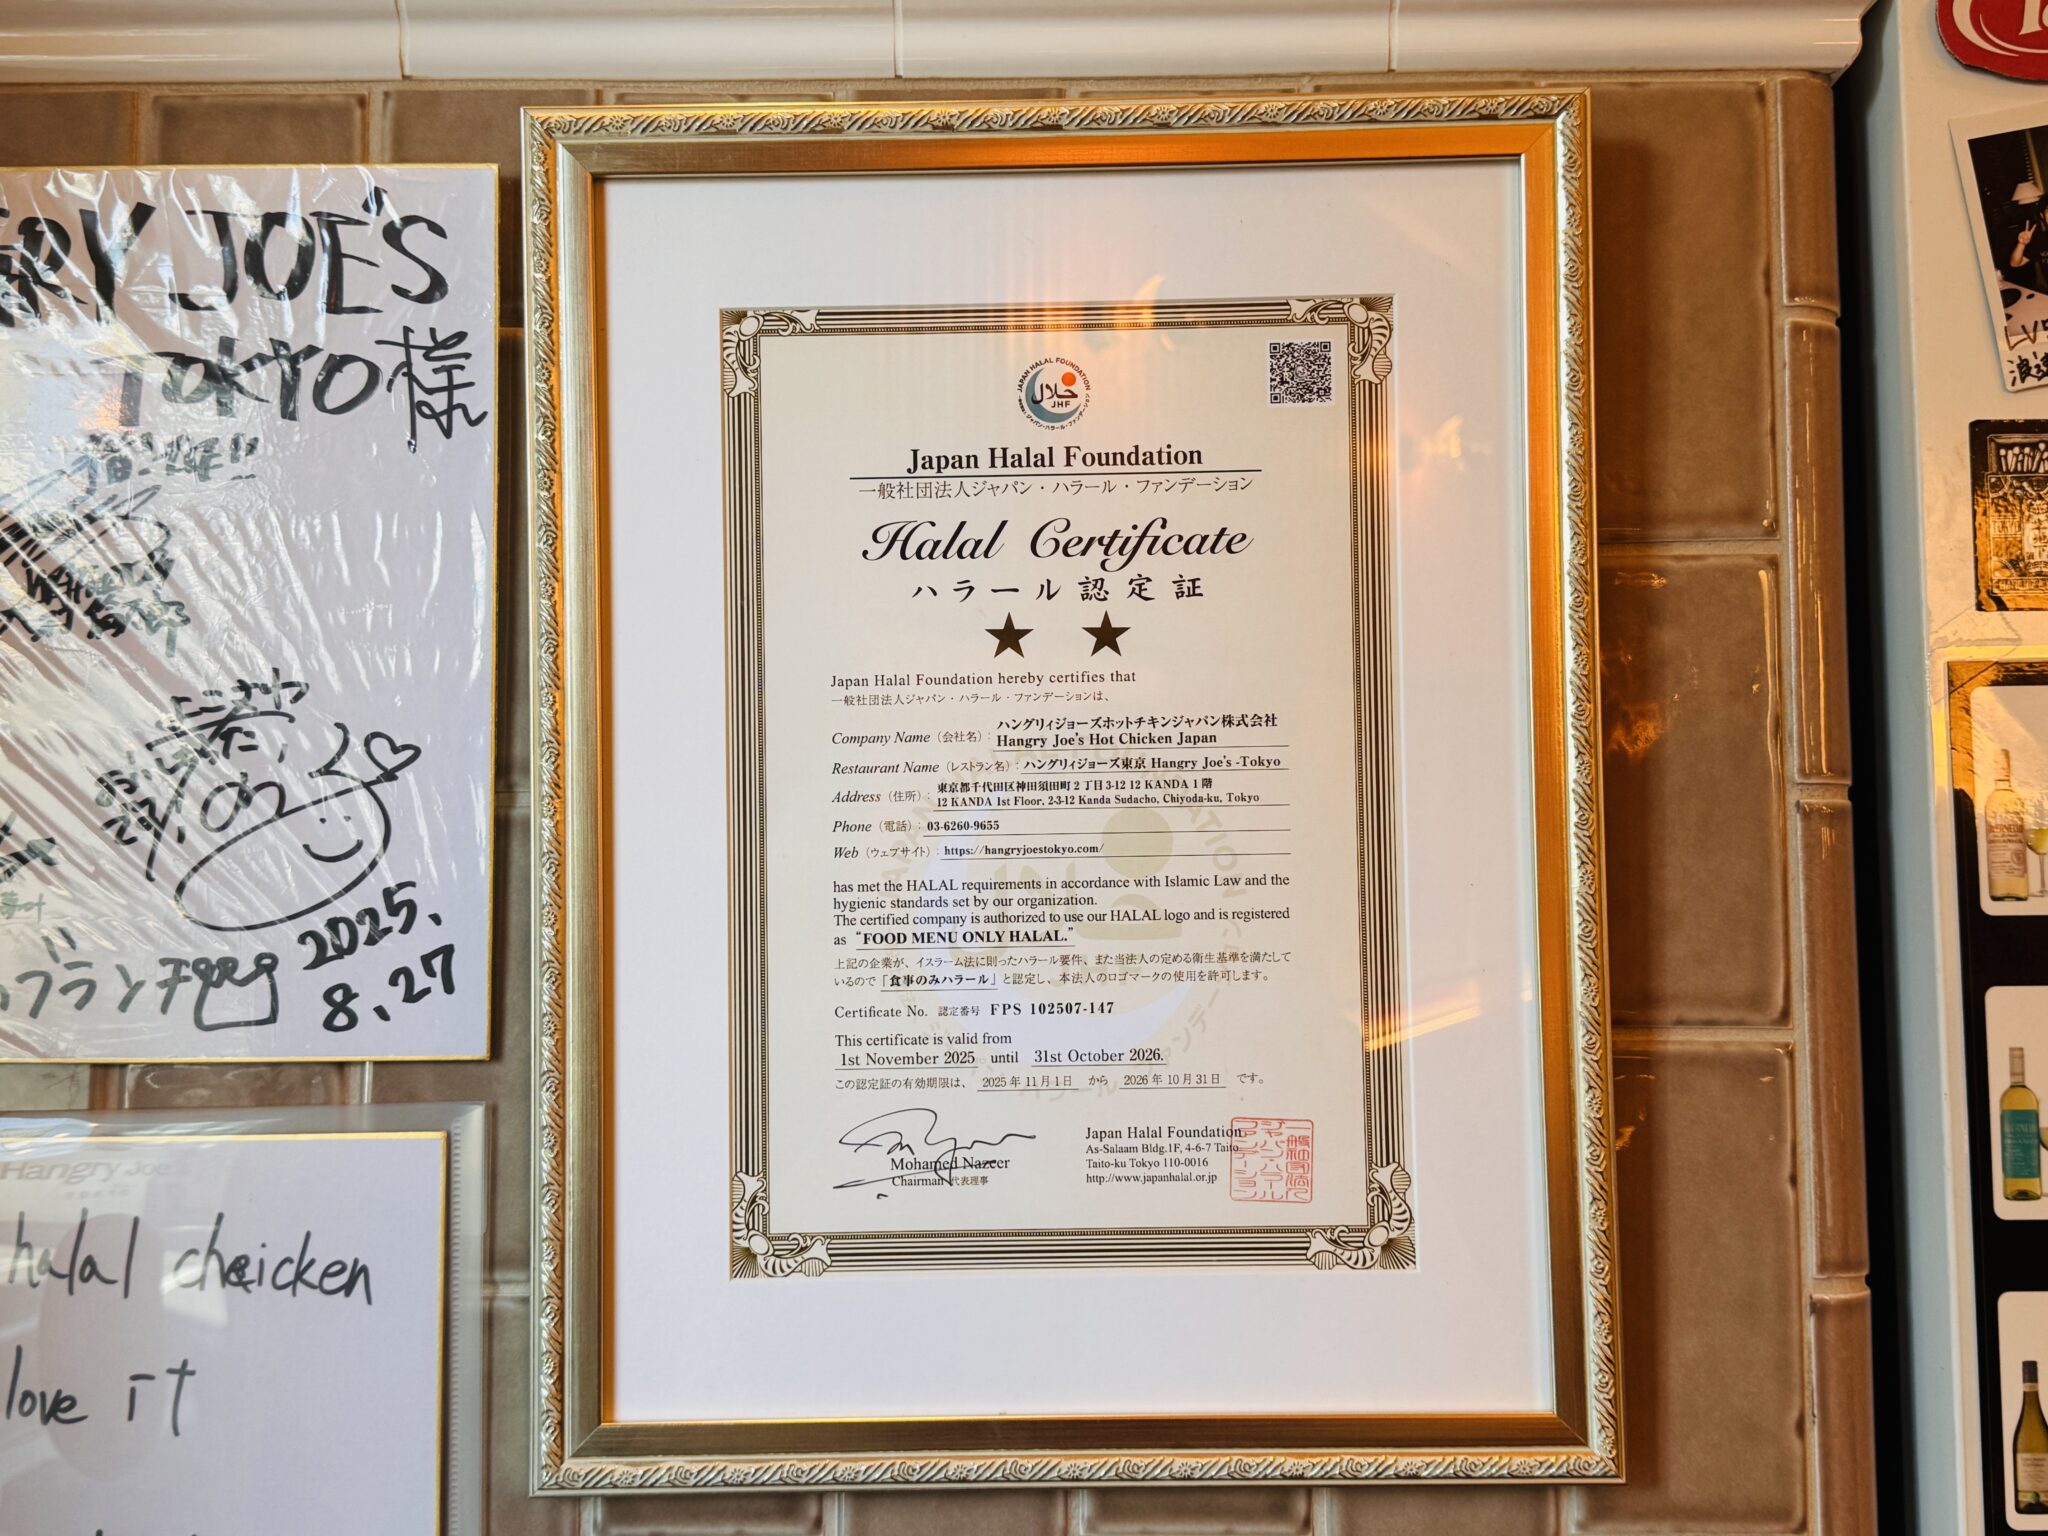 JOE'S
TOKYO 様
2025.
8.27
Hangry Joe
halal cheicken
love it
JAPAN HALAL FOUNDATION
حلال
JHF
一般社団法人 ジャパン・ハラール・ファンデーション
Japan Halal Foundation
一般社団法人ジャパン・ハラール・ファンデーション
Halal Certificate
ハラール認定証
★ ★
Japan Halal Foundation hereby certifies that
一般社団法人ジャパン・ハラール・ファンデーションは、
ハングリィジョーズホットチキンジャパン株式会社
Company Name (会社名) : Hangry Joe's Hot Chicken Japan
Restaurant Name (レストラン名) : ハングリィジョーズ東京 Hangry Joe's -Tokyo
東京都千代田区神田須田町2丁目3-12 12 KANDA 1階
Address (住所) : 12 KANDA 1st Floor, 2-3-12 Kanda Sudacho, Chiyoda-ku, Tokyo
Phone (電話) : 03-6260-9655
Web (ウェブサイト) : https://hangryjoestokyo.com/
has met the HALAL requirements in accordance with Islamic Law and the
hygienic standards set by our organization.
The certified company is authorized to use our HALAL logo and is registered
as "FOOD MENU ONLY HALAL."
上記の企業が、イスラーム法に則ったハラール要件、また当法人の定める衛生基準を満たして
いるので「食事のみハラール」と認定し、本法人のロゴマークの使用を許可します。
Certificate No. 認定番号 FPS 102507-147
This certificate is valid from
1st November 2025 until 31st October 2026.
この認定証の有効期限は、 2025年11月1日 から 2026年10月31日 です。
Mohamed Nazeer
Chairman 代表理事
Japan Halal Foundation
As-Salaam Bldg.1F, 4-6-7 Taito
Taito-ku Tokyo 110-0016
http://www.japanhalal.or.jp
一般社団法人
ジャパン・ハラール
ファンデーション